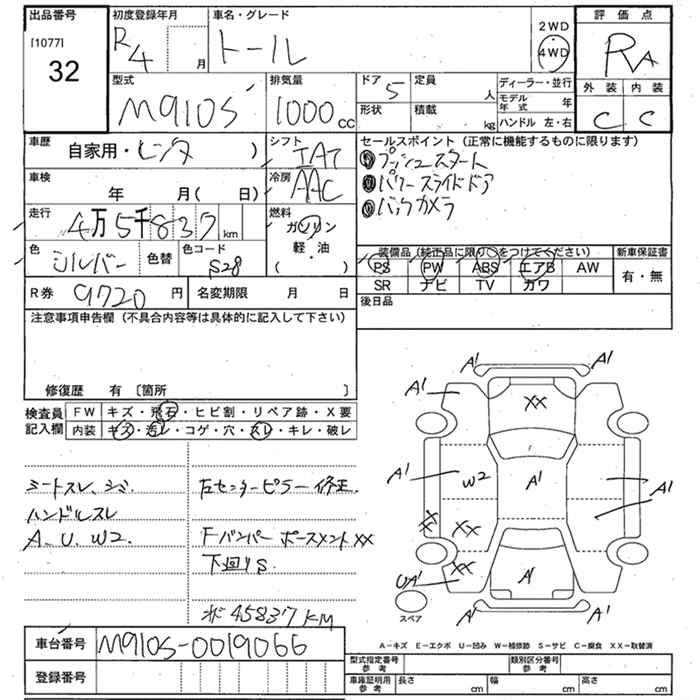 出品番号
[1077]
32
初度登録年月
R4 月
車名・グレード
トール
2WD
4WD
評価点
RA
外装 内装
C C
型式
M910S
排気量
1000cc
ドア
5
定員
人
形状
積載
kg
ディーラー・並行
モデル年式 年
ハンドル 左・右
車歴
自家用・レンタ )
シフト
IAT
冷房
AAC
セールスポイント (正常に機能するものに限ります)
プッシュスタート
パワースライドドア
バックカメラ
車検
年 月( 日)
走行
4万5千837km
燃料
ガソリン
軽・油
( )
色
シルバー
色替
色コード
S28
装備品 (純正品に限り○をつけてください)
新車保証書
PS PW ABS エアB AW
SR ナビ TV カワ
有・無
R券 9720 円
名変期限 月 日
後日品
注意事項申告欄 (不具合内容等は具体的に記入して下さい)
修復歴 有 〔箇所 〕
検査員記入欄
FW キズ・飛石・ヒビ割・リペア跡・X要
内装 キズ・汚レ・コゲ・穴・スレ・キレ・破レ
シートスレ、シミ.
ハンドルスレ
A、U、W2.
左センターピラー修正.
Fバンパー ポースメントXX
下回りS
メ 45837KM
A1 A1
A1
XX
A1 W2 A1 A1
XX XX
XX
UA1 A1
A1 A1
スペア
A-キズ E-エクボ U-凹み W-補修跡 S-サビ C-腐食 XX-取替済
車台番号 M910S-0019066
登録番号
型式指定番号参考
類別区分番号参考
車庫証明用参考
長さ cm 幅 cm 高さ cm